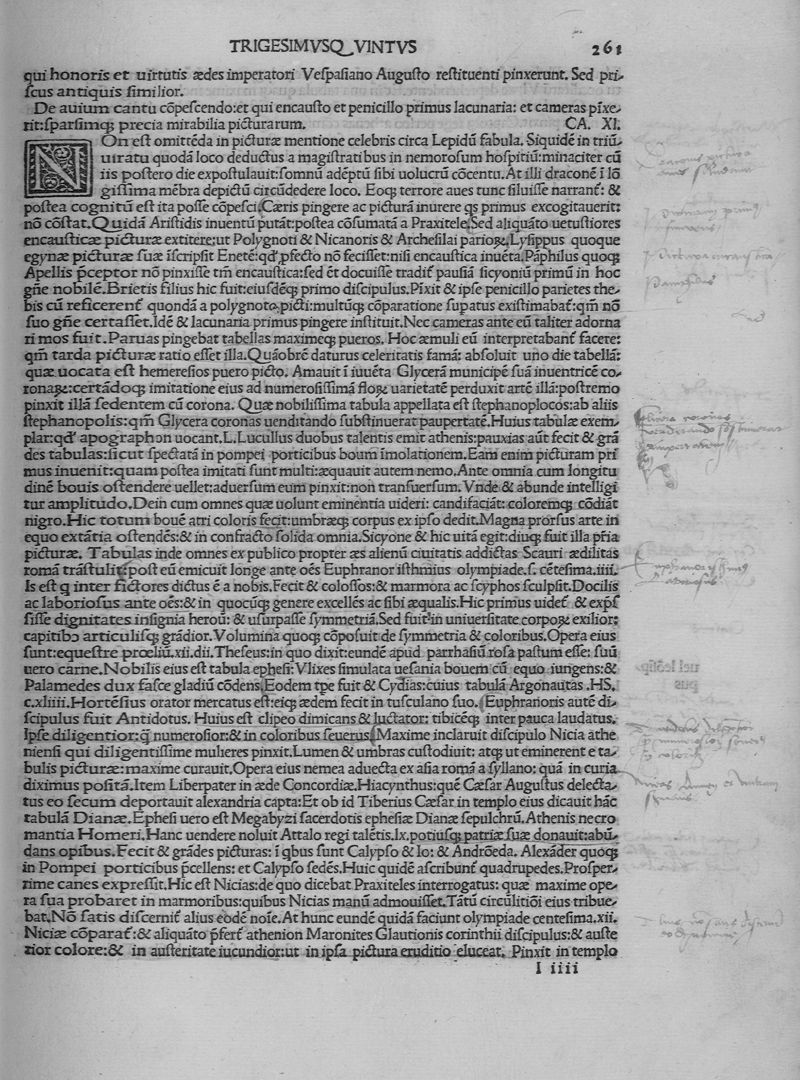 TRIGESIMVSQ VINTVS 261
qui honoris et uirtutis ædes imperatori Veſpaſiano Auguſto reſtituenti pinxerunt. Sed pri-
ſcus antiquis ſimilior.
De auium cantu cõpeſcendo:et qui encauſto et penicillo primus lacunaria: et cameras pĩxe-
rit:ſparſimq̃ precia mirabilia picturarum. CA. XI.
NOn eſt omittẽda in picturæ mentione celebris circa Lepidũ fabula. Siquidẽ in triũ-
uiratu quodã loco deductus a magiſtratibus in nemoroſum hoſpitiũ:minaciter cũ
iis poſtero die expoſtulauit:ſomnũ adẽptũ ſibi uolucrũ cõcentu. At illi draconẽ ĩ lõ
giſſima mẽbra depictũ circũdedere loco. Eoq̃ terrore aues tunc ſiluiſſe narrant̃: &
poſtea cognitũ eſt ita poſſe cõpeſci. Cæris pingere ac picturã inurere qs primus excogitauerit:
nõ cõſtat. Quidã Ariſtidis inuentũ putãt:poſtea cõſumatã a Praxitele. Sed aliquãto uetuſtiores
encauſticæ picturæ extitere:ut Polygnoti & Nicanoris & Archeſilai parioꝝ. Lyſippus quoque
egynæ picturæ ſuæ ĩſcripſit Enetẽ:qđ ꝓfecto nõ feciſſet:niſi encauſtica inuẽta. Pãphilus quoq̃
Apellis p̃ceptor nõ pinxiſſe tm̃ encauſtica:ſed ẽt docuiſſe tradit̃ pauſiã ſicyoniũ primũ in hoc
gñe nobilẽ. Brietis filius hic fuit:eiuſdẽq̃ primo diſcipulus. Pĩxit & ipſe penicillo parietes the-
bis cũ reficerent̃ quondã a polygnoto picti:multũq̃ cõparatione ſupatus exiſtimabat̃:qm̃ nõ
ſuo gñe certaſſet. Idẽ & lacunaria primus pingere inſtituit. Nec cameras ante eũ taliter adorna
ri mos fuit. Paruas pingebat tabellas maximeq̃ pueros. Hoc æmuli eũ interpretabant̃ facere:
qm̃ tarda picturæ ratio eſſet illa. Quãobrẽ daturus celeritatis famã: abſoluit uno die tabellã:
quæ uocata eſt hemereſios puero picto. Amauit ĩ iuuẽta Glycerã municipẽ ſuã inuentricẽ co-
ronaꝝ:certãdoq̃ imitatione eius ad numeroſiſſimã floꝝ uarietatẽ perduxit artẽ illã:poſtremo
pinxit illã ſedentem cũ corona. Quæ nobiliſſima tabula appellata eſt ſtephanoplocos:ab aliis
ſtephanopolis:qm̃ Glycera coronas uenditando ſubſtinuerat paupertatẽ. Huius tabulæ exem-
plar:qđ apographon uocant. L. Lucullus duobus talentis emit athenis:pauxias aũt fecit & grã
des tabulas:ſicut ſpectatã in pompei porticibus boum ĩmolationem. Eam enim picturam pri
mus inuenit:quam poſtea imitati ſunt multi:æquauit autem nemo. Ante omnia cum longitu
dinẽ bouis oſtendere uellet:aduerſum eum pinxit:non tranſuerſum. Vnde & abunde intelligi
tur amplitudo. Dein cum omnes quæ uolunt eminentia uideri: candifaciãt: coloremq̃ cõdiãt
nigro. Hic totum bouẽ atri coloris fecit:umbræq̃ corpus ex ipſo dedit. Magna prorſus arte in
equo extãtia oſtendẽs:& in confracto ſolida omnia. Sicyone & hic uitã egit:diuq̃ fuit illa p̃ria
picturæ. Tabulas inde omnes ex publico propter æs alienũ ciuitatis addictas Scauri ædilitas
romã trãſtulit:poſt eũ emicuit longe ante oẽs Euphranor iſthmius olympiade.f. cẽteſima.iiii.
Is eſt q inter fictores dictus ẽ a nobis. Fecit & coloſſos:& marmora ac ſcyphos ſculpſit. Docilis
ac laborioſus ante oẽs:& in quocũq̃ genere excellẽs ac ſibi æqualis. Hic primus uidet̃ & exp̃ſ
ſiſſe dignitates inſignia heroũ: & uſurpaſſe ſymmetriã. Sed fuit in uniuerſitate corpoꝝ exilior:
capitibꝰ articuliſq̃ grãdior. Volumina quoq̃ cõpoſuit de ſymmetria & coloribus. Opera eius
ſunt:equeſtre prœliũ.xii.dii. Theſeus:in quo dixit:eundẽ apud parrhaſiũ roſa paſtum eſſe: ſuũ
uero carne. Nobilis eius eſt tabula epheſi: Vlixes ſimulata ueſania bouem cũ equo iungens:&
Palamedes dux faſce gladiũ cõdens. Eodem tp̃e fuit & Cydias:cuius tabulã Argonautas .HS.
c.xliiii. Hortẽſius orator mercatus eſt:eiq̃ ædem fecit in tuſculano ſuo. Euphranoris autẽ di-
ſcipulus fuit Antidotus. Huius eſt clipeo dimicans & luctator: tibicẽq̃ inter pauca laudatus.
Ipſe diligentior:q̃ numeroſior:& in coloribus ſeuerus. Maxime inclaruit diſcipulo Nicia athe
nienſi qui diligentiſſime mulieres pinxit. Lumen & umbras cuſtodiuit: atq̃ ut eminerent e ta-
bulis picturæ:maxime curauit. Opera eius nemea aduecta ex aſia romã a ſyllano: quã in curia
diximus poſitã. Item Liberpater in æde Concordiæ. Hiacynthus:quẽ Cæſar Auguſtus delecta-
tus eo ſecum deportauit alexandria capta:Et ob id Tiberius Cæſar in templo eius dicauit hãc
tabulã Dianæ. Epheſi uero eſt Megabyzi ſacerdotis epheſiæ Dianæ ſepulchrũ. Athenis necro
mantia Homeri. Hanc uendere noluit Attalo regi talẽtis.lx.potiuſq̃ patriæ ſuæ donauit:abũ-
dans opibus. Fecit & grãdes picturas: ĩ qbus ſunt Calypſo & Io: & Andrõeda. Alexãder quoq̃
in Pompei porticibus p̃cellens: et Calypſo ſedẽs. Huic quidẽ aſcribunt̃ quadrupedes. Proſper-
rime canes expreſſit. Hic eſt Nicias:de quo dicebat Praxiteles interrogatus: quæ maxime ope-
ra ſua probaret in marmoribus:quibus Nicias manũ admouiſſet. Tãtũ circũlitiõi eius tribue-
bat. Nõ ſatis diſcernit̃ alius eodẽ noĩe. At hunc eundẽ quidã faciunt olympiade centeſima.xii.
Niciæ cõparat̃:& aliquãto p̃fert̃ athenion Maronites Glautionis corinthii diſcipulus:& auſte
rior colore:& in auſteritate iucundior:ut in ipſa pictura eruditio eluceat. Pinxit in templo
I iiii